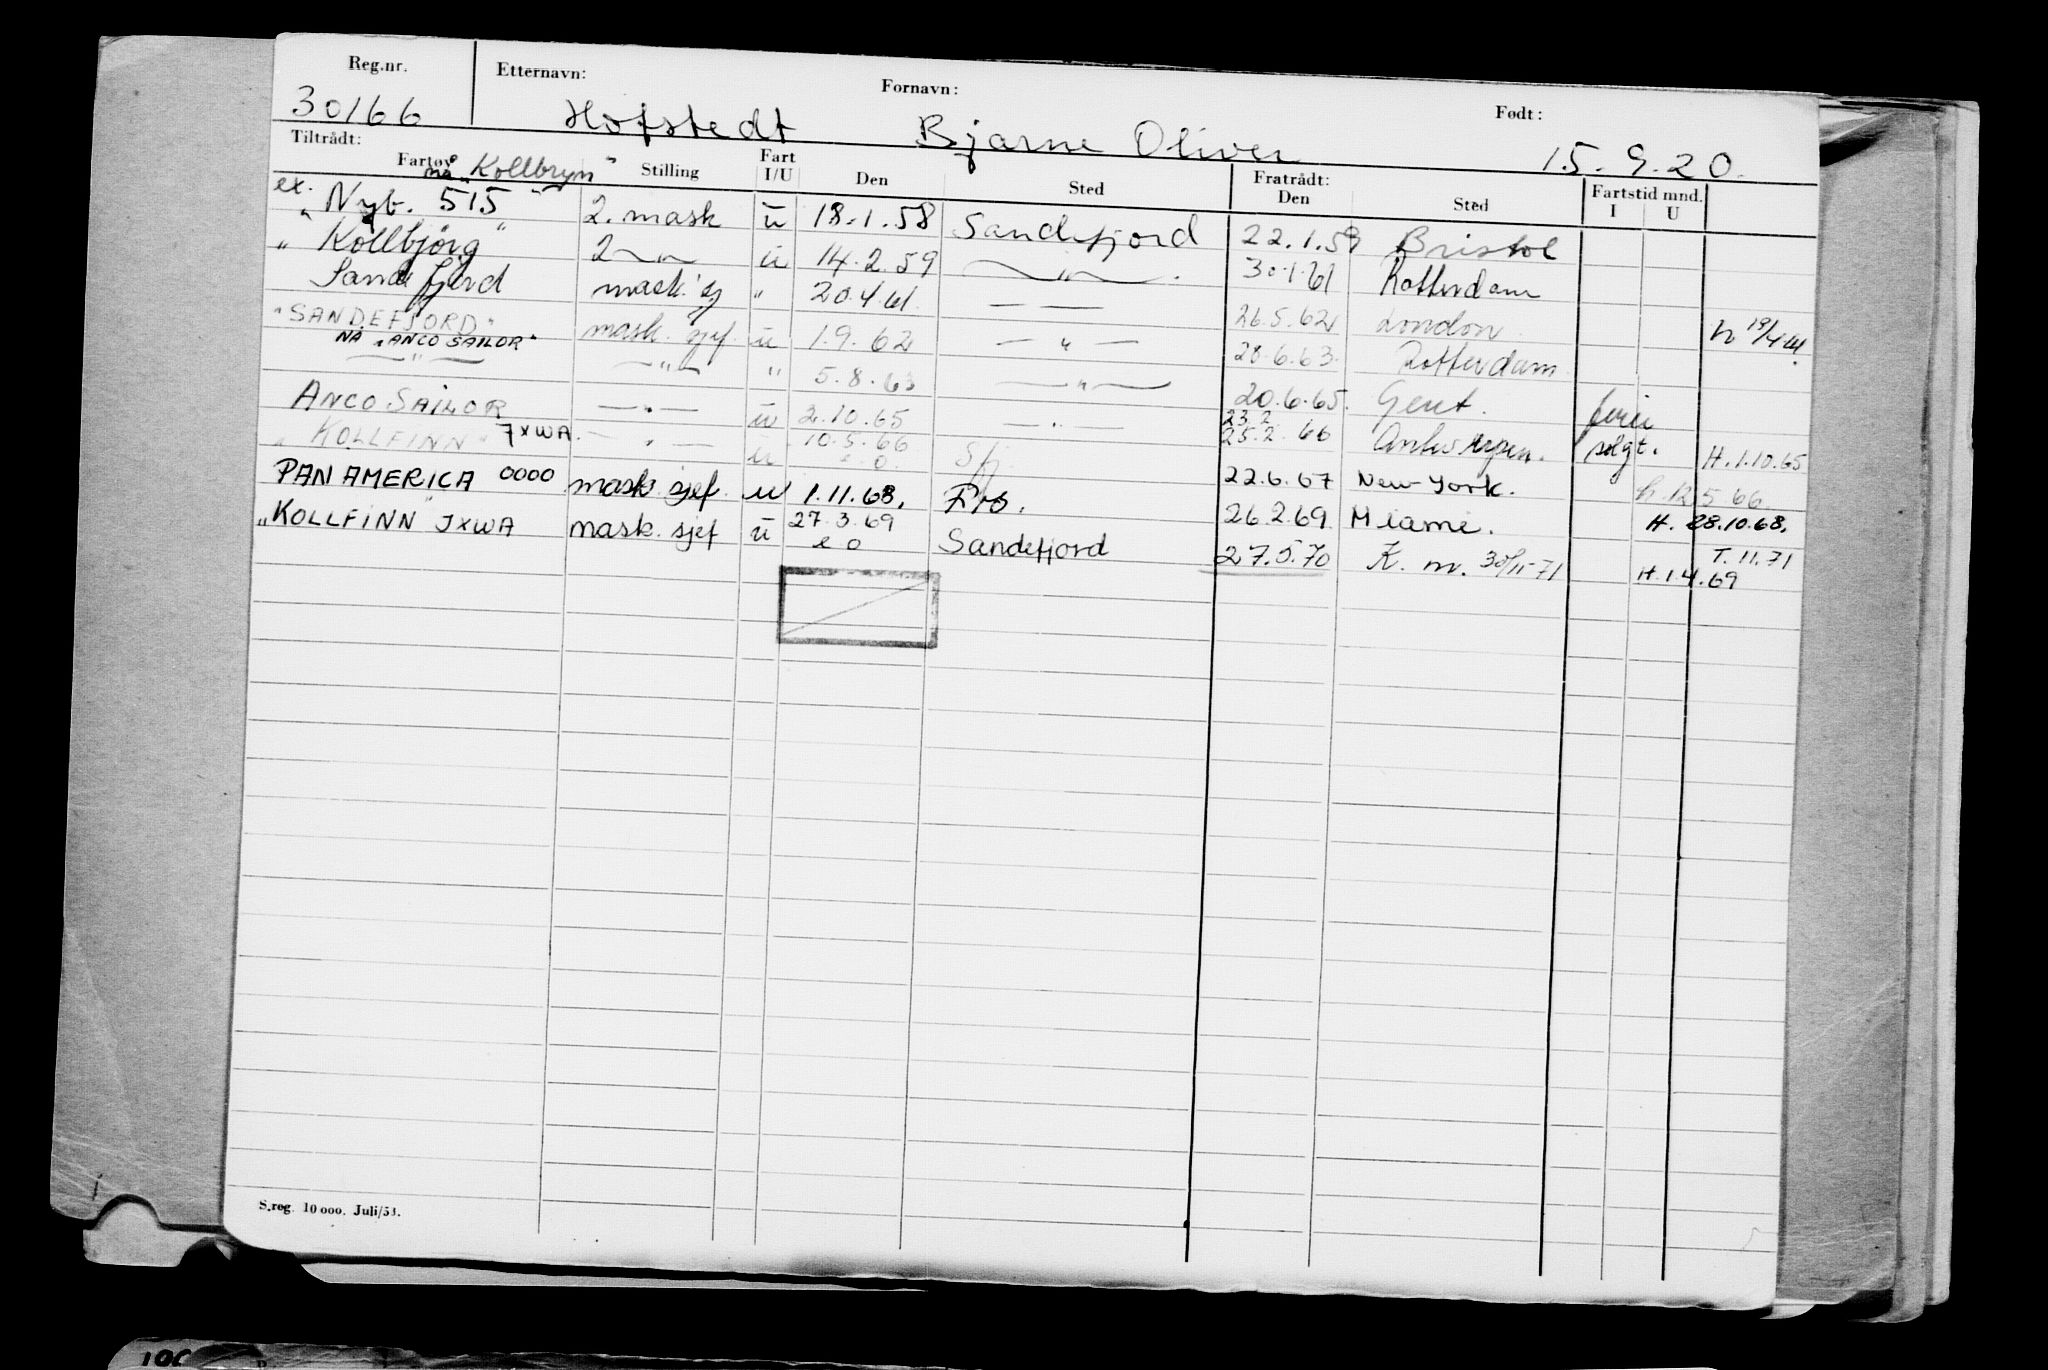 Reg.nr. Etternavn: Fornavn: Født:
30166 Hofstedt Bjarne Oliver 15.9.20.
Tiltrådt: Fartøy Stilling Fart I/U Den Sted Fratrådt: Den Sted Fartstid mnd. I U
nå "Kollbryn"
ex. Nyb. 515 2. mask u 18.1.58 Sandefjord 22.1.59 Bristol
" Kollbjørg " 2 —"— u 14.2.59 —"— 30.1.61 Rotterdam
" Sandefjord mask. sj " 20.4.61 — — 26.5.62 London h 19/4 61
"SANDEFJORD" mask. sjef. u 1.9.62 — " — 28.6.63. Rotterdam
NÅ "ANCO SAILOR"
—"— —"— " 5.8.63 — " — 20.6.65. Gent. ferie
ANCO SAILOR — " — u 2.10.65 — " — 23.2 25.2.66 Antwerpen. solgt. H.1.10.65
" KOLLFINN " JXWA. — " — u 10.5.66 e.o. Sfj. 22.6.67 New York. h.12.5.66
PAN AMERICA 0000 mask. sjef. u 1.11.68. 26.2.69 Miami. H. 28.10.68.
"KOLLFINN" JXWA mask. sjef u 27.3.69 e o Sandefjord 27.5.70 K. m. 30/11-71 T.11.71
H.1.4.69
S.reg. 10 000. Juli/53.
100